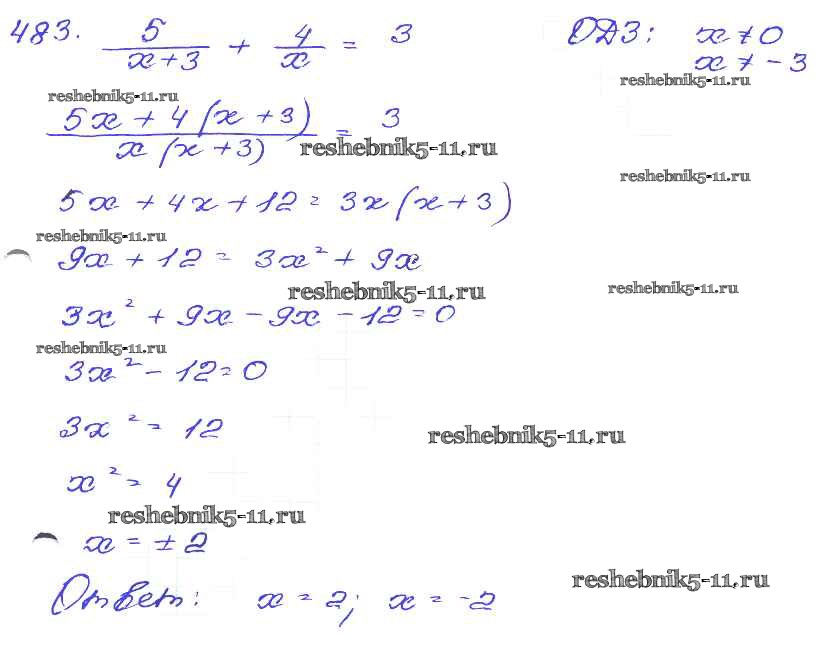 483. 5/(x+3) + 4/x = 3 ОДЗ: x ≠ 0
x ≠ -3
reshebnik5-11.ru
reshebnik5-11.ru
(5x + 4(x+3))/(x(x+3)) = 3
reshebnik5-11.ru
reshebnik5-11.ru
5x + 4x + 12 = 3x(x+3)
reshebnik5-11.ru
9x + 12 = 3x² + 9x
reshebnik5-11.ru
reshebnik5-11.ru
3x² + 9x - 9x - 12 = 0
reshebnik5-11.ru
3x² - 12 = 0
3x² = 12
reshebnik5-11.ru
x² = 4
reshebnik5-11.ru
x = ± 2
reshebnik5-11.ru
Ответ: x = 2; x = -2